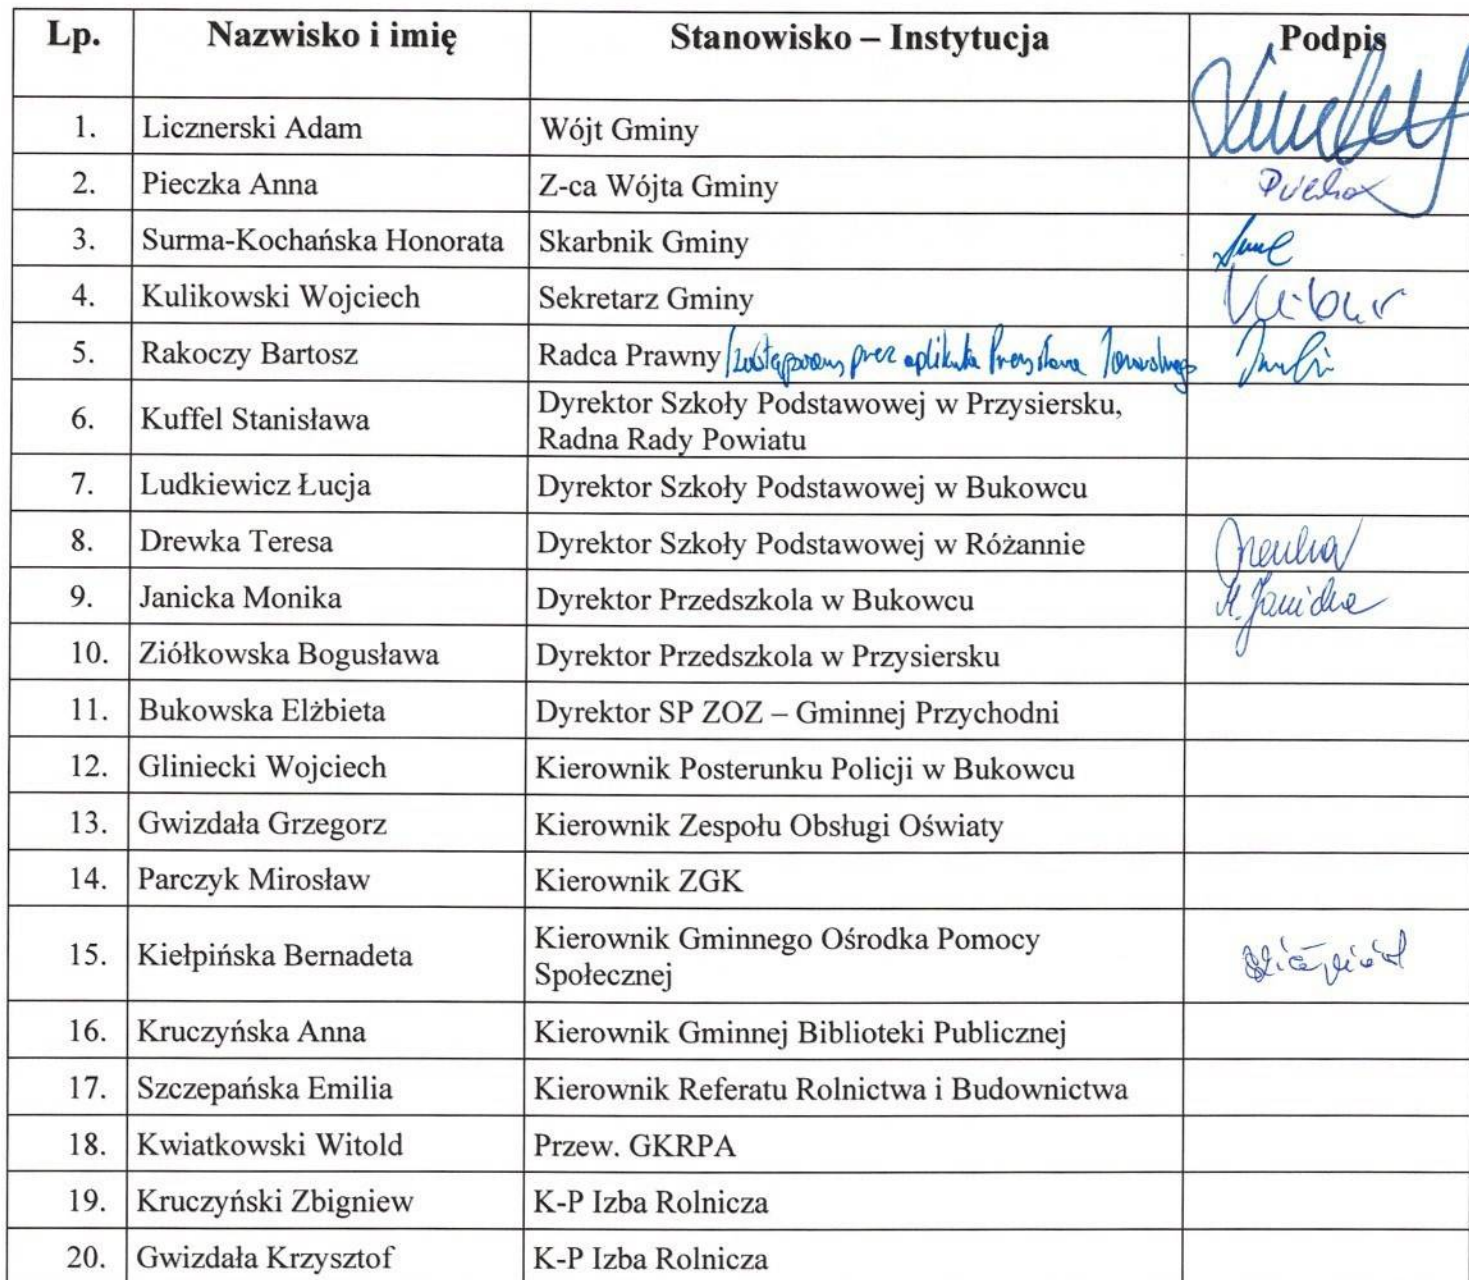 Lp. Nazwisko i imię Stanowisko – Instytucja Podpis
1. Licznerski Adam Wójt Gminy
2. Pieczka Anna Z-ca Wójta Gminy
3. Surma-Kochańska Honorata Skarbnik Gminy
4. Kulikowski Wojciech Sekretarz Gminy
5. Rakoczy Bartosz Radca Prawny przez aplikanta
6. Kuffel Stanisława Dyrektor Szkoły Podstawowej w Przysiersku,
Radna Rady Powiatu
7. Ludkiewicz Łucja Dyrektor Szkoły Podstawowej w Bukowcu
8. Drewka Teresa Dyrektor Szkoły Podstawowej w Różannie
9. Janicka Monika Dyrektor Przedszkola w Bukowcu M. Janicka
10. Ziółkowska Bogusława Dyrektor Przedszkola w Przysiersku
11. Bukowska Elżbieta Dyrektor SP ZOZ – Gminnej Przychodni
12. Gliniecki Wojciech Kierownik Posterunku Policji w Bukowcu
13. Gwizdała Grzegorz Kierownik Zespołu Obsługi Oświaty
14. Parczyk Mirosław Kierownik ZGK
15. Kiełpińska Bernadeta Kierownik Gminnego Ośrodka Pomocy
Społecznej
16. Kruczyńska Anna Kierownik Gminnej Biblioteki Publicznej
17. Szczepańska Emilia Kierownik Referatu Rolnictwa i Budownictwa
18. Kwiatkowski Witold Przew. GKRPA
19. Kruczyński Zbigniew K-P Izba Rolnicza
20. Gwizdała Krzysztof K-P Izba Rolnicza